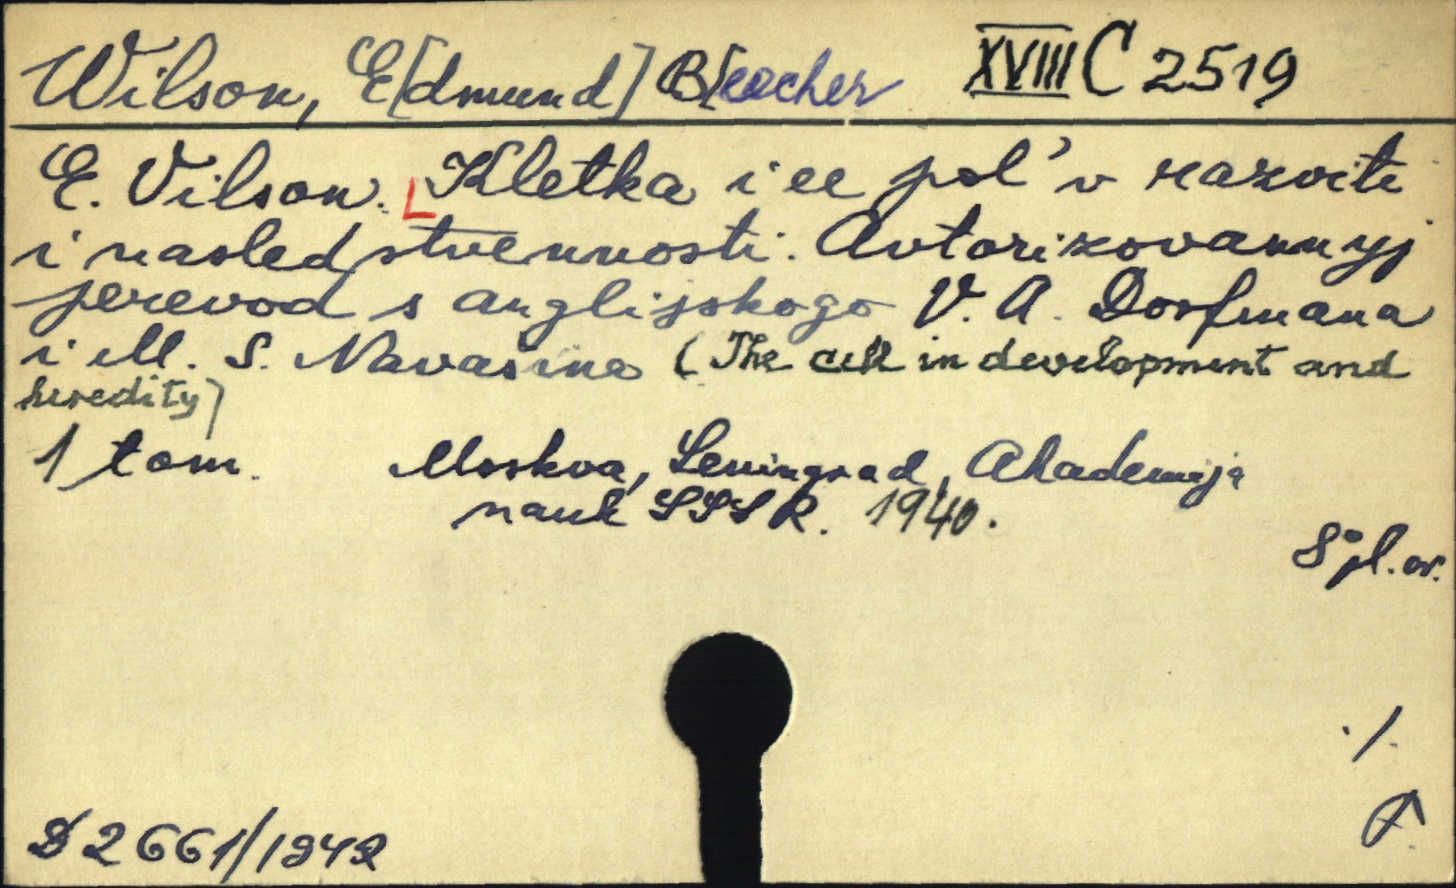 Wilson, E[dmund] B[eecher XVIII C 2519
E. Vilson. Kletka i ee pol' v razviti
i nasledstvennosti. Avtorizovannyj
perevod s anglijskogo V. A. Dorfmana
i M. S. Navašina (The cell in development and
heredity)
1 tom. Moskva, Leningrad, Akademija
nauk SSSR. 1940.
8° pl. or.
./.
D 2661/1942